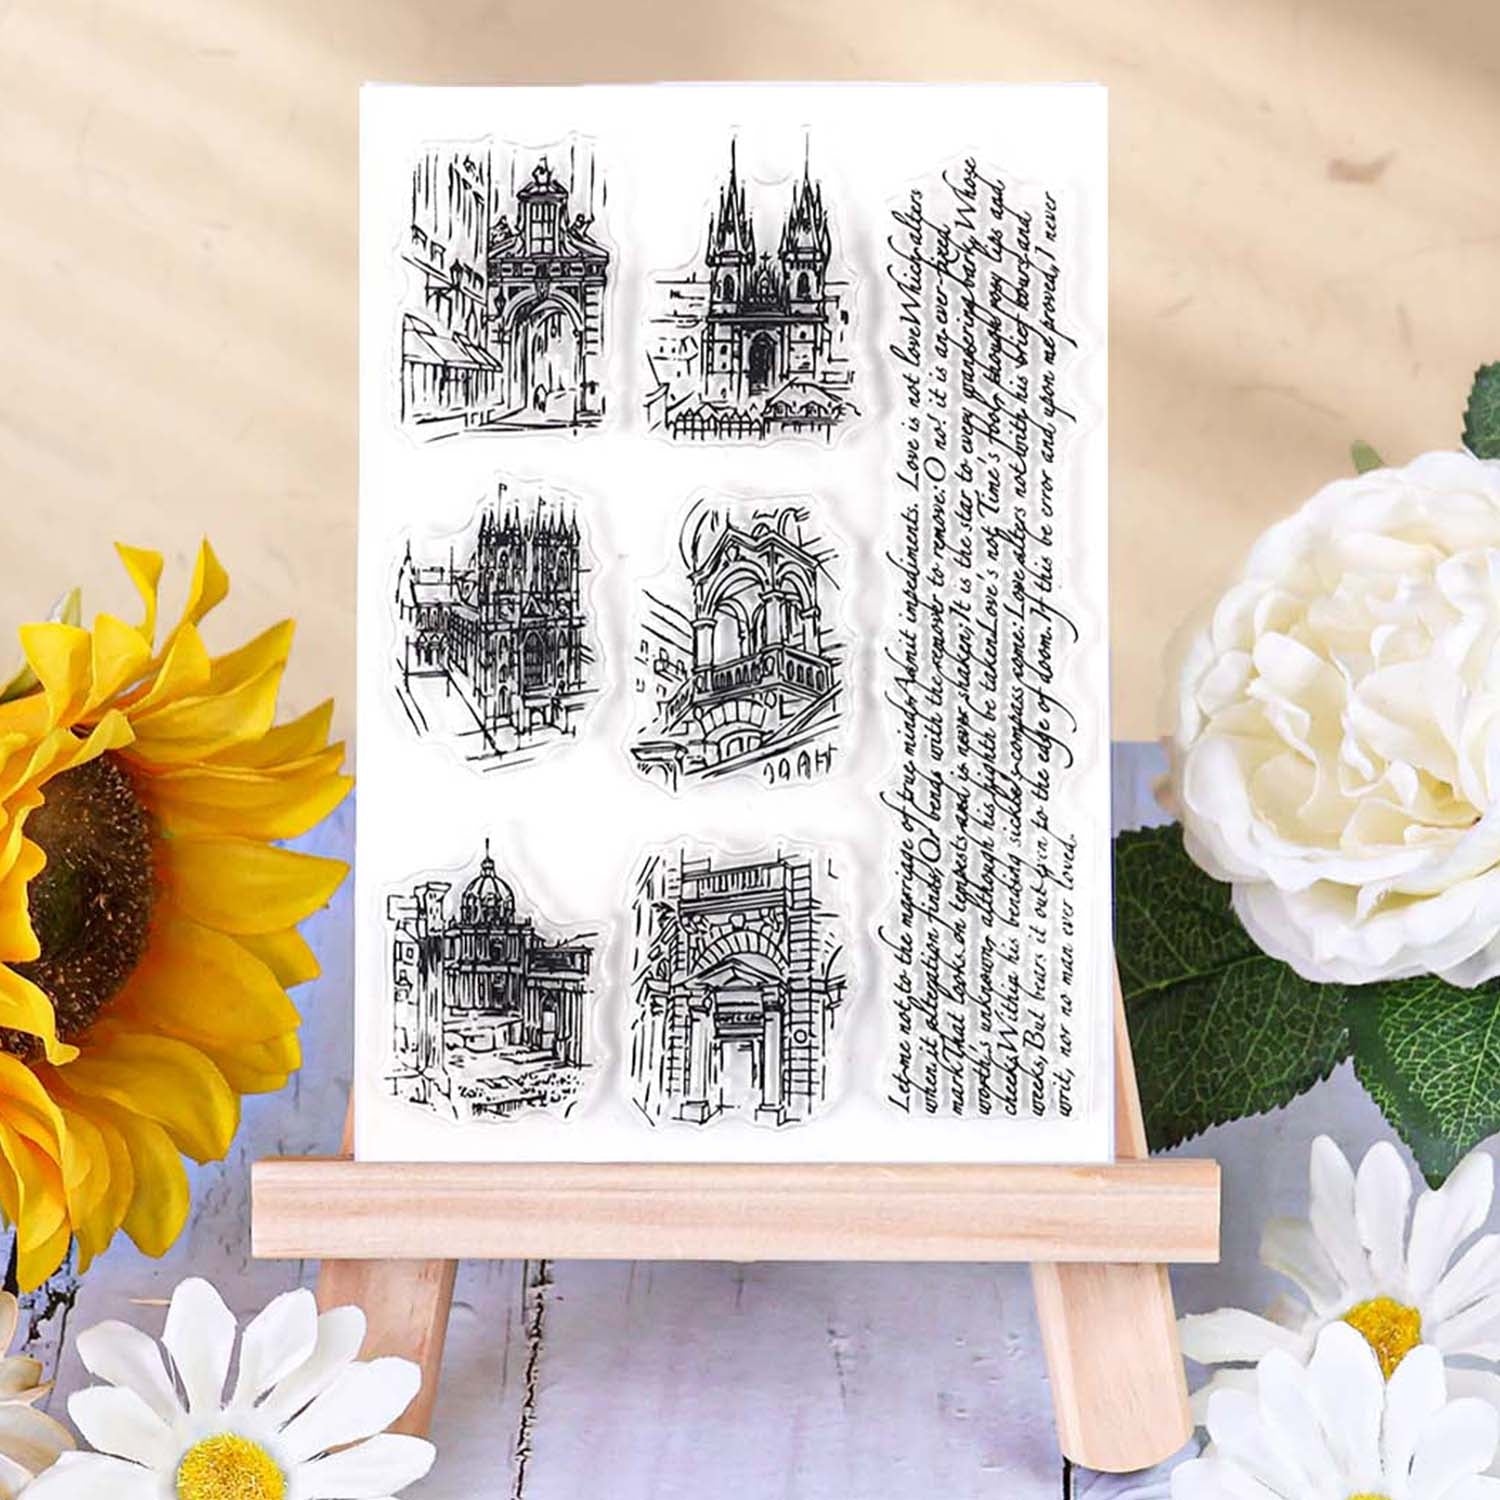 Let me not to the marriage of true minds Admit impediments. Love is not love Which alters
when it alteration finds, Or bends with the remover to remove: O no! it is an ever-fixed
mark That looks on tempests and is never shaken; It is the star to every wandering bark, Whose
worth's unknown, although his highth be taken. Love's not Time's fool, though rosy lips and
cheeks Within his bending sickle's compass come: Love alters not with his brief hours and
weeks, But bears it out even to the edge of doom. If this be error and upon me proved, I never
writ, nor no man ever loved.